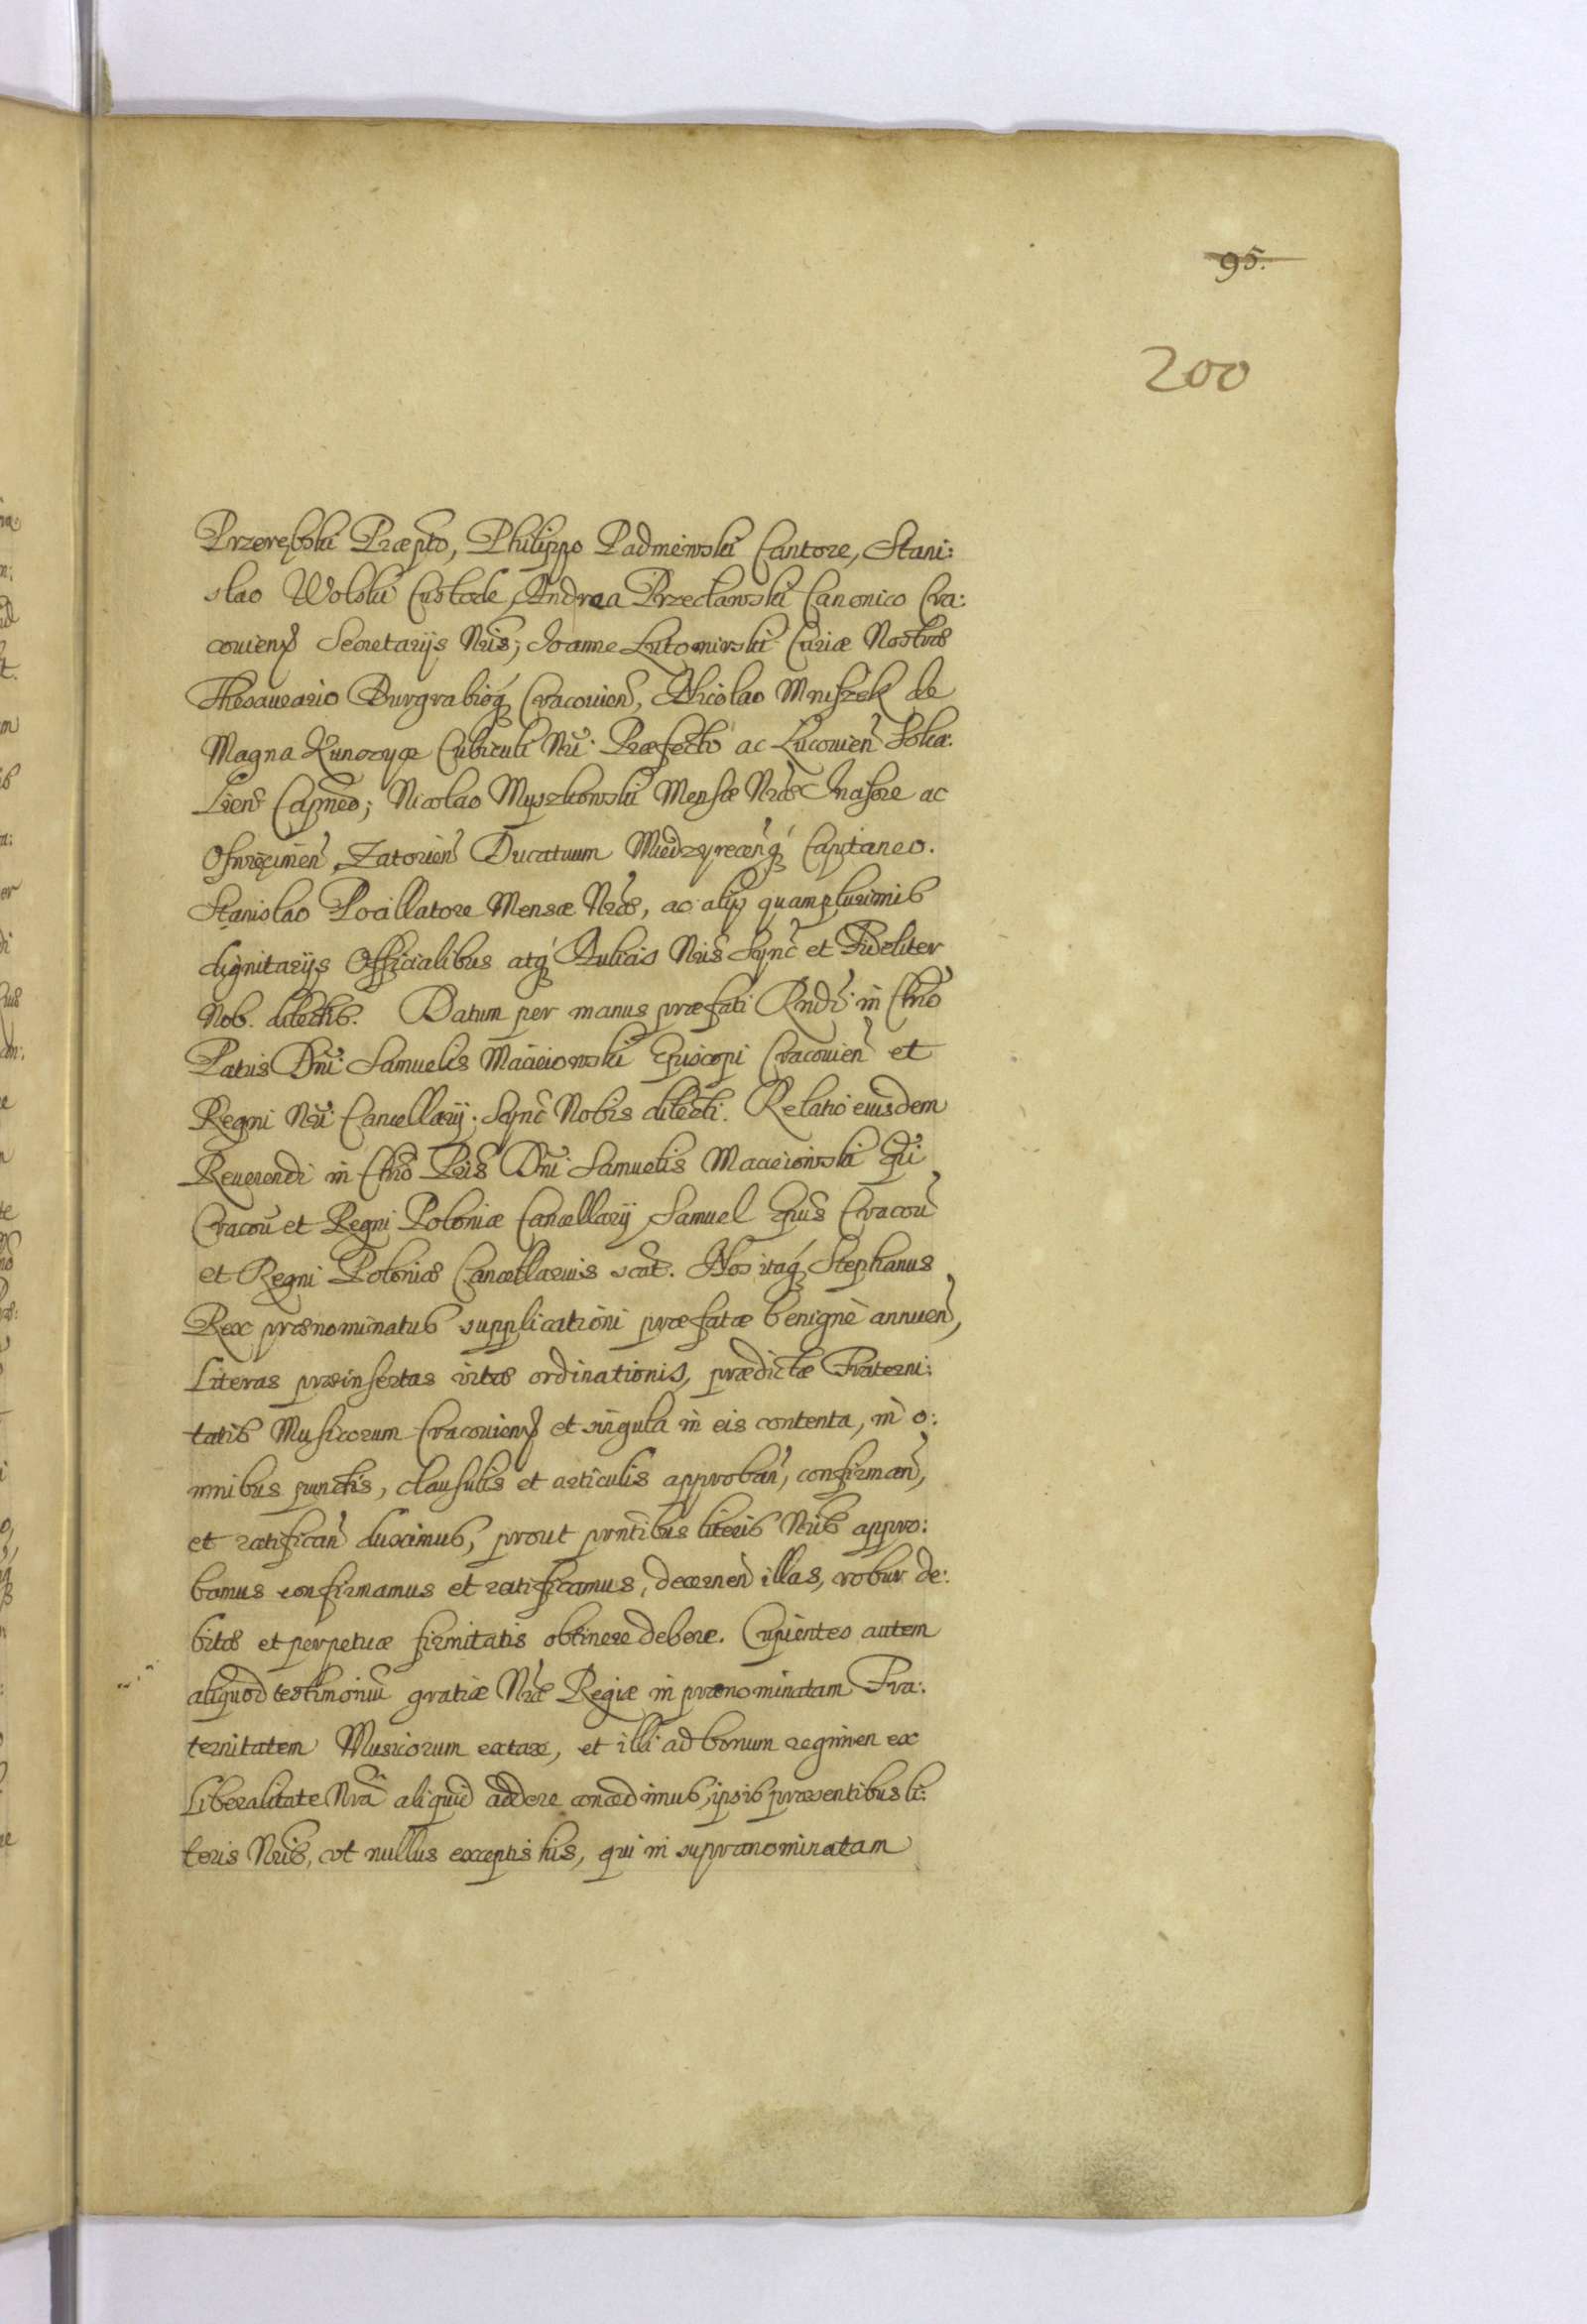 95.
200
Przerębski Præpto, Philippo Padniewski Cantore, Stani:
slao Wolski Custode, Andrea Przecławski Canonico Cra:
couienß Secretarijs Nris; Joanne Lutomirski Curiæ Nostræ
Thesaurario Burgrabioq́ Cracouien̄, Nicolao Mniszek de
Magna Kunczycze Cubiculi Nrī. Præfecto ac Lucouien̄ Soka:
Lien̄ Capneo; Nicolao Myszkowski Mensæ Nræ Incisore ac
Osnwięcimen̄, Zatorien̄ Ducatuum Miedzyrecen̄q́ Capitaneo.
Stanislao Pocillatore Mensæ Nræ, ac alijs quamplurimis
dignitarijs Officialibus atq́ Aulicis Nris Synē et Fideliter
Nob. dilectis. Datum per manus præfati Rndī in Chrō
Patris Dnī Samuelis Macieiowski Episcopi Cracouien̄ et
Regni Nrī Cancellarij. Synē Nobis dilecti. Relatio eiusdem
Reuerendi in Chrō Pris Dnī Samuelis Macieiowski Epi
Cracou̅ et Regni Poloniæ Cancellarij, Samuel Epus Cracou̅
et Regni Poloniæ Cancellarius sc̄at. Nos itaq́ Stephanus
Rex prænominatus supplicationi præfatæ benignè annuen̄,
Literas præinsertas vitæ ordinationis, prædictæ Fraterni:
tatis Musicorum Cracouienß et singula in eis contenta, in o:
mnibus punctis, clausulis et articulis approban̄, confirman̄,
et ratifican̄ duximus, prout prntībus literis Nris appro:
bamus confirmamus et ratificamus, decernen̄ illas, robur de:
bitæ et perpetuæ firmitatis obtinere debere. Cupientes autem
aliquod testimoniū gratiæ Nræ Regiæ in prænominatam Fra:
ternitatem Musicorum extare, et illi ad bonum regimen ex
Liberalitate Nrā aliquid addere concedimus, ipsis præsentibus li:
teris Nris, vt nullus exceptis his, qui in supranominatam